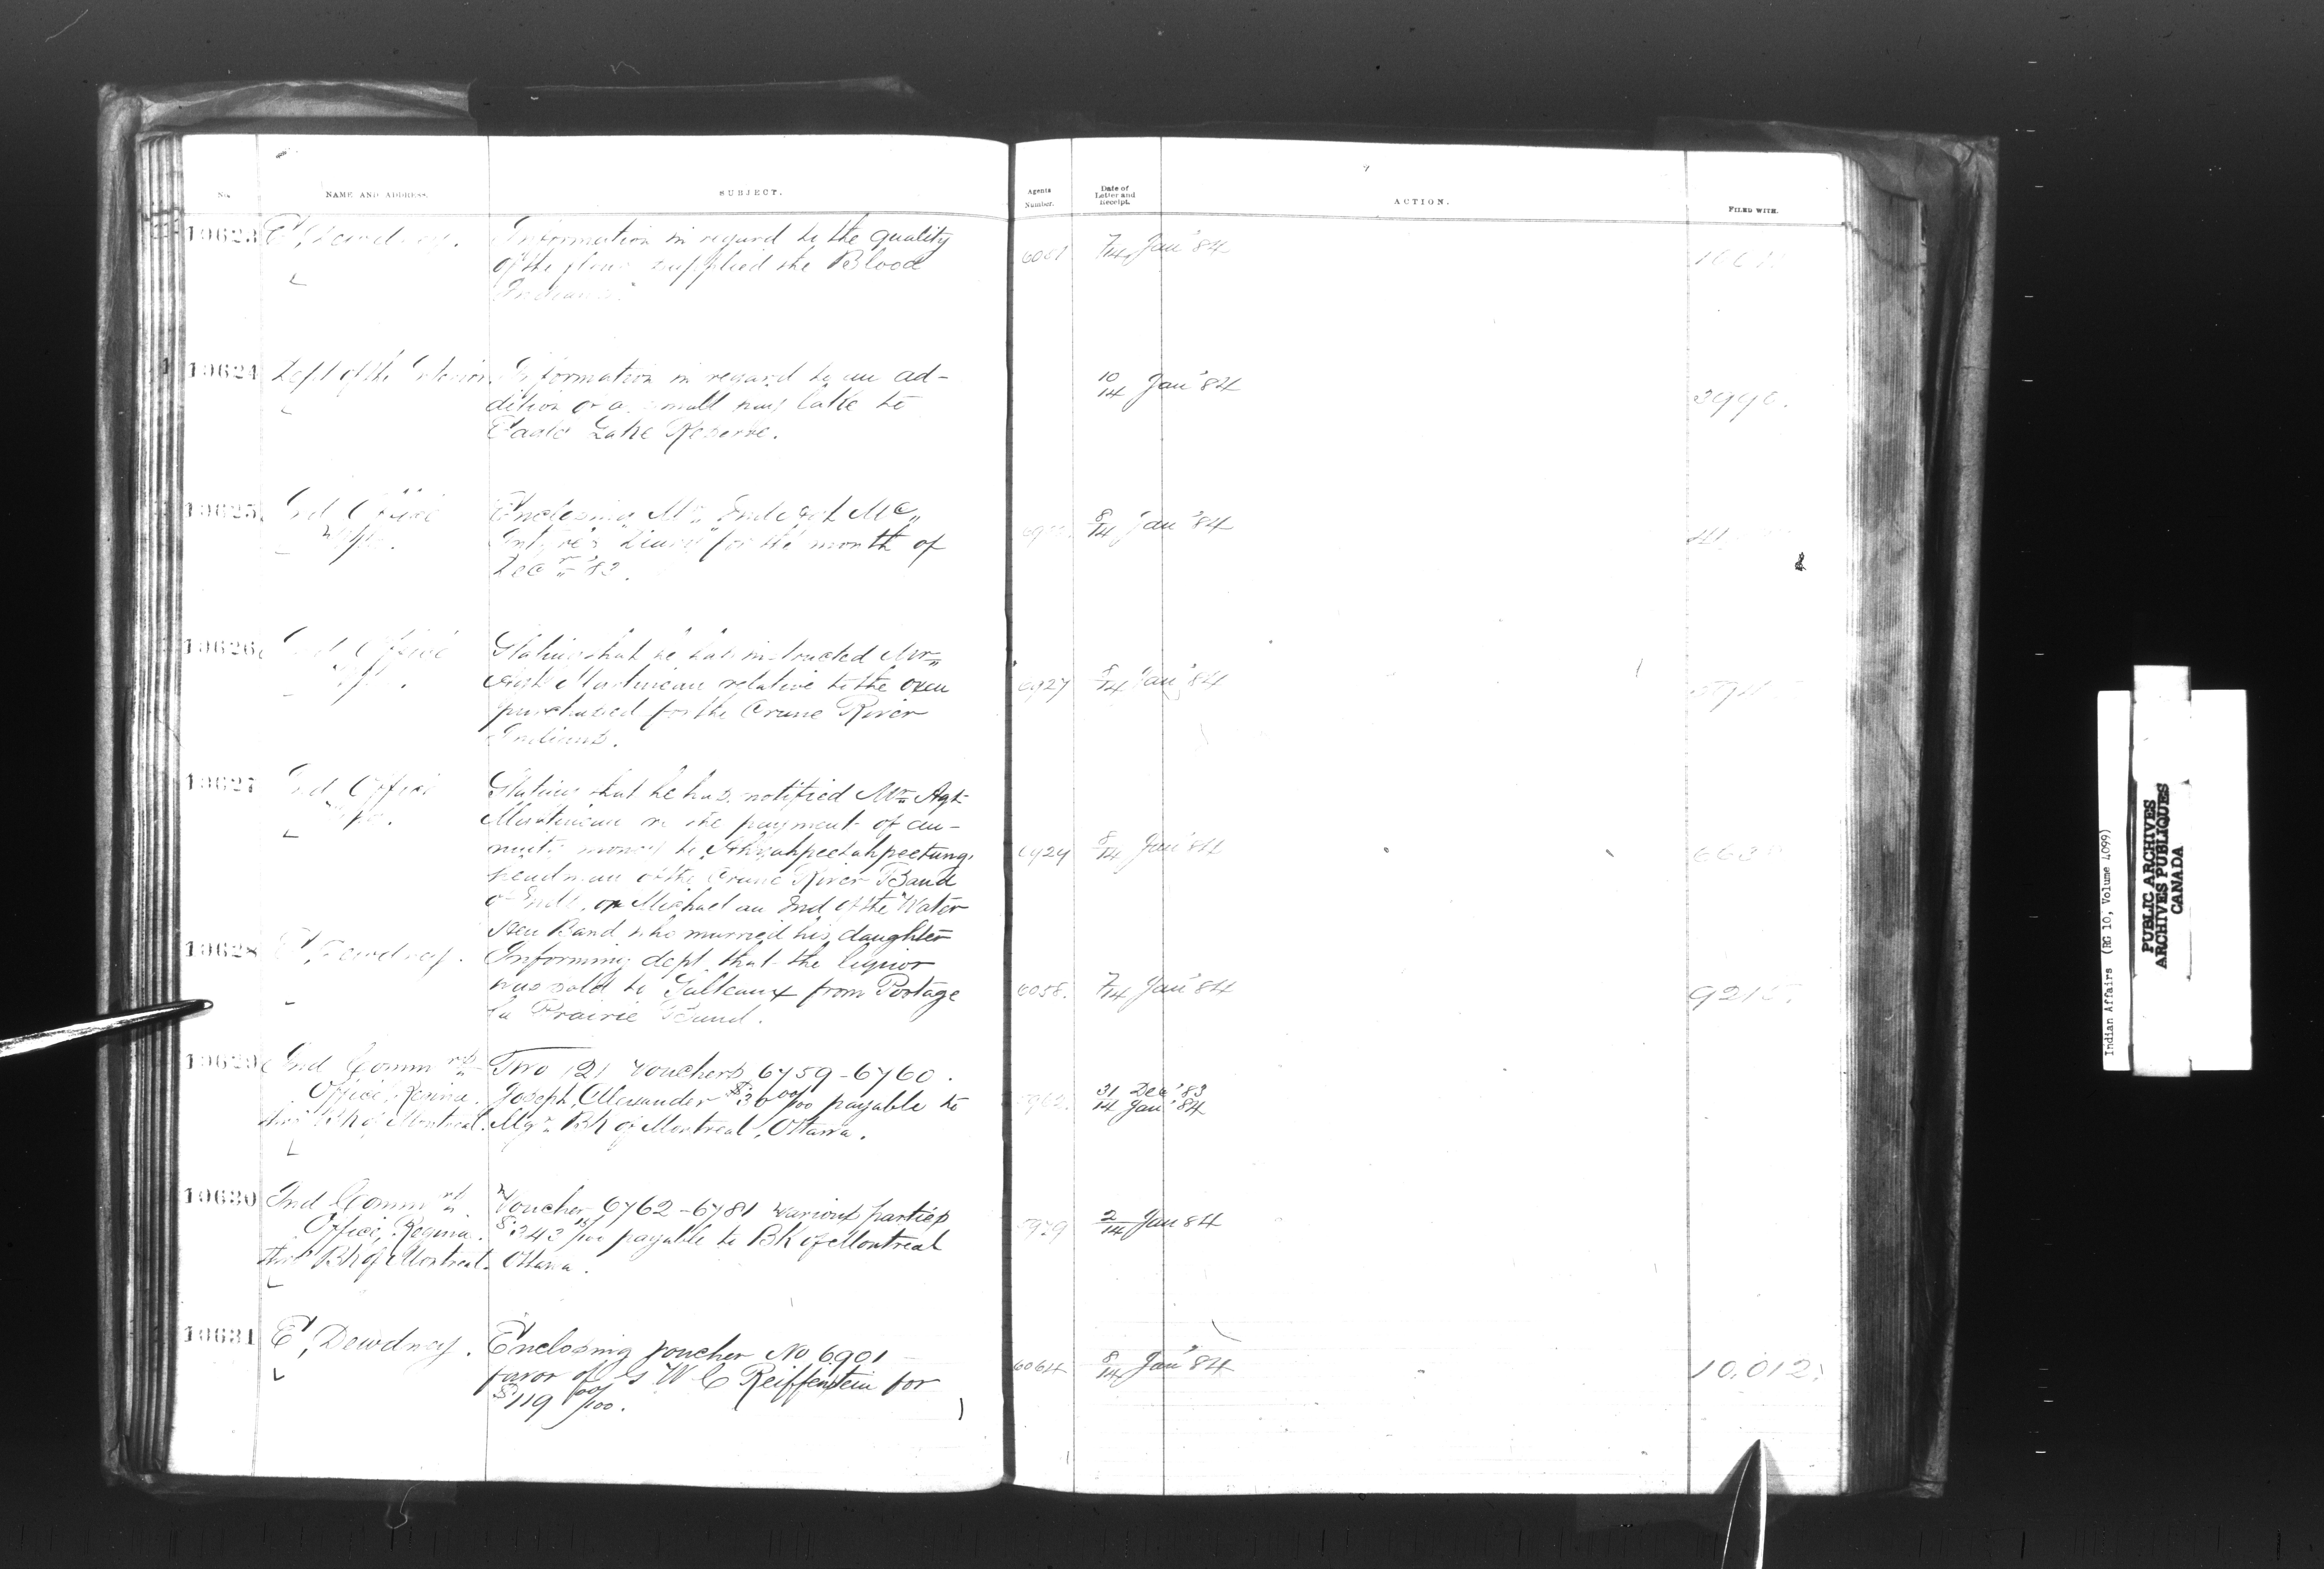 No.
NAME AND ADDRESS.
SUBJECT.
Agents
Number.
Date of
Letter and
Receipt.
ACTION.
FILED WITH.
10623
E. Dewdney.
Information in regard to the quality
of the flour supplied the Blood
Indians.
6061
7/14 Jan' 84
10624
Dept of the Interior
Information in regard to an ad-
dition of a small hay lake to
Eagle Lake Reserve.
10/14 Jan' 84
3990.
10625
Ind Office
Wpg.
Enclosing Mr. Ind Agt Mc
Intyre's Diary for the month of
Decr '83.
8/14 Jan '84
10626
Ind Office
Wpg.
Stating that he has instructed Mr
Agt Martineau relative to the oxen
purchased for the Crane River
Indians.
6927
8/14 Jan' 84
10627
Ind Office
Wpg.
Stating that he has notified Mr Agt
Martineau re the payment of an-
nuity money to
headman of the Crane River Band
of Inds. or Michael an Ind of the Water
Hen Band who married his daughter
6929
8/14 Jan' 84
10628
E. Dewdney.
Informing dept. that the liquor
was sold to Salteaux from Portage
la Prairie Band.
6058.
7/14 Jan' 84
10629
Ind Commrs
Office, Regina.
thro' Bk of Montreal.
Two (2) Vouchers 6759-6760.
Joseph Alexander $30 00/100 payable to
Mgr. Bk of Montreal, Ottawa.
31 Dec' 83
14 Jan' 84
10630
Ind Commrs
Office, Regina.
thro' Bk of Montreal.
Voucher 6762-6781 various parties
payable to BK of Montreal
Ottawa.
2/14 Jan 84
10631
E. Dewdney.
Enclosing voucher No 6901
favor of G W C Reiffenstein for
$119 00/100.
6064
8/14 Jan' 84
10,012.
Indian Affairs (RG 10, Volume 4099)
PUBLIC ARCHIVES
ARCHIVES PUBLIQUES
CANADA